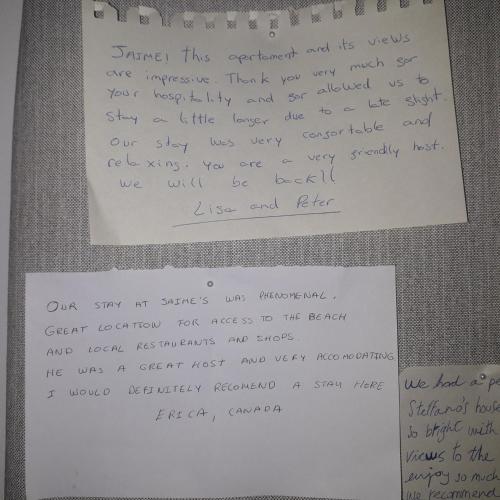 JAIME! this apartament and its views
are impressive. Thank you very much for
your hospitality and for allowed us to
stay a little longer due to a late flight.
Our stay was very confortable and
relaxing. you are a very friendly host.
we will be back!!
Lisa and Peter
OUR STAY AT JAIME'S WAS PHENOMENAL.
GREAT LOCATION FOR ACCESS TO THE BEACH
AND LOCAL RESTAURANTS AND SHOPS.
HE WAS A GREAT HOST AND VERY ACCOMODATING
I WOULD DEFINITELY RECOMEND A STAY HERE
ERICA, CANADA
We had a pe
Steffano's house
so bright with
views to the
enjoy so much
we recommend